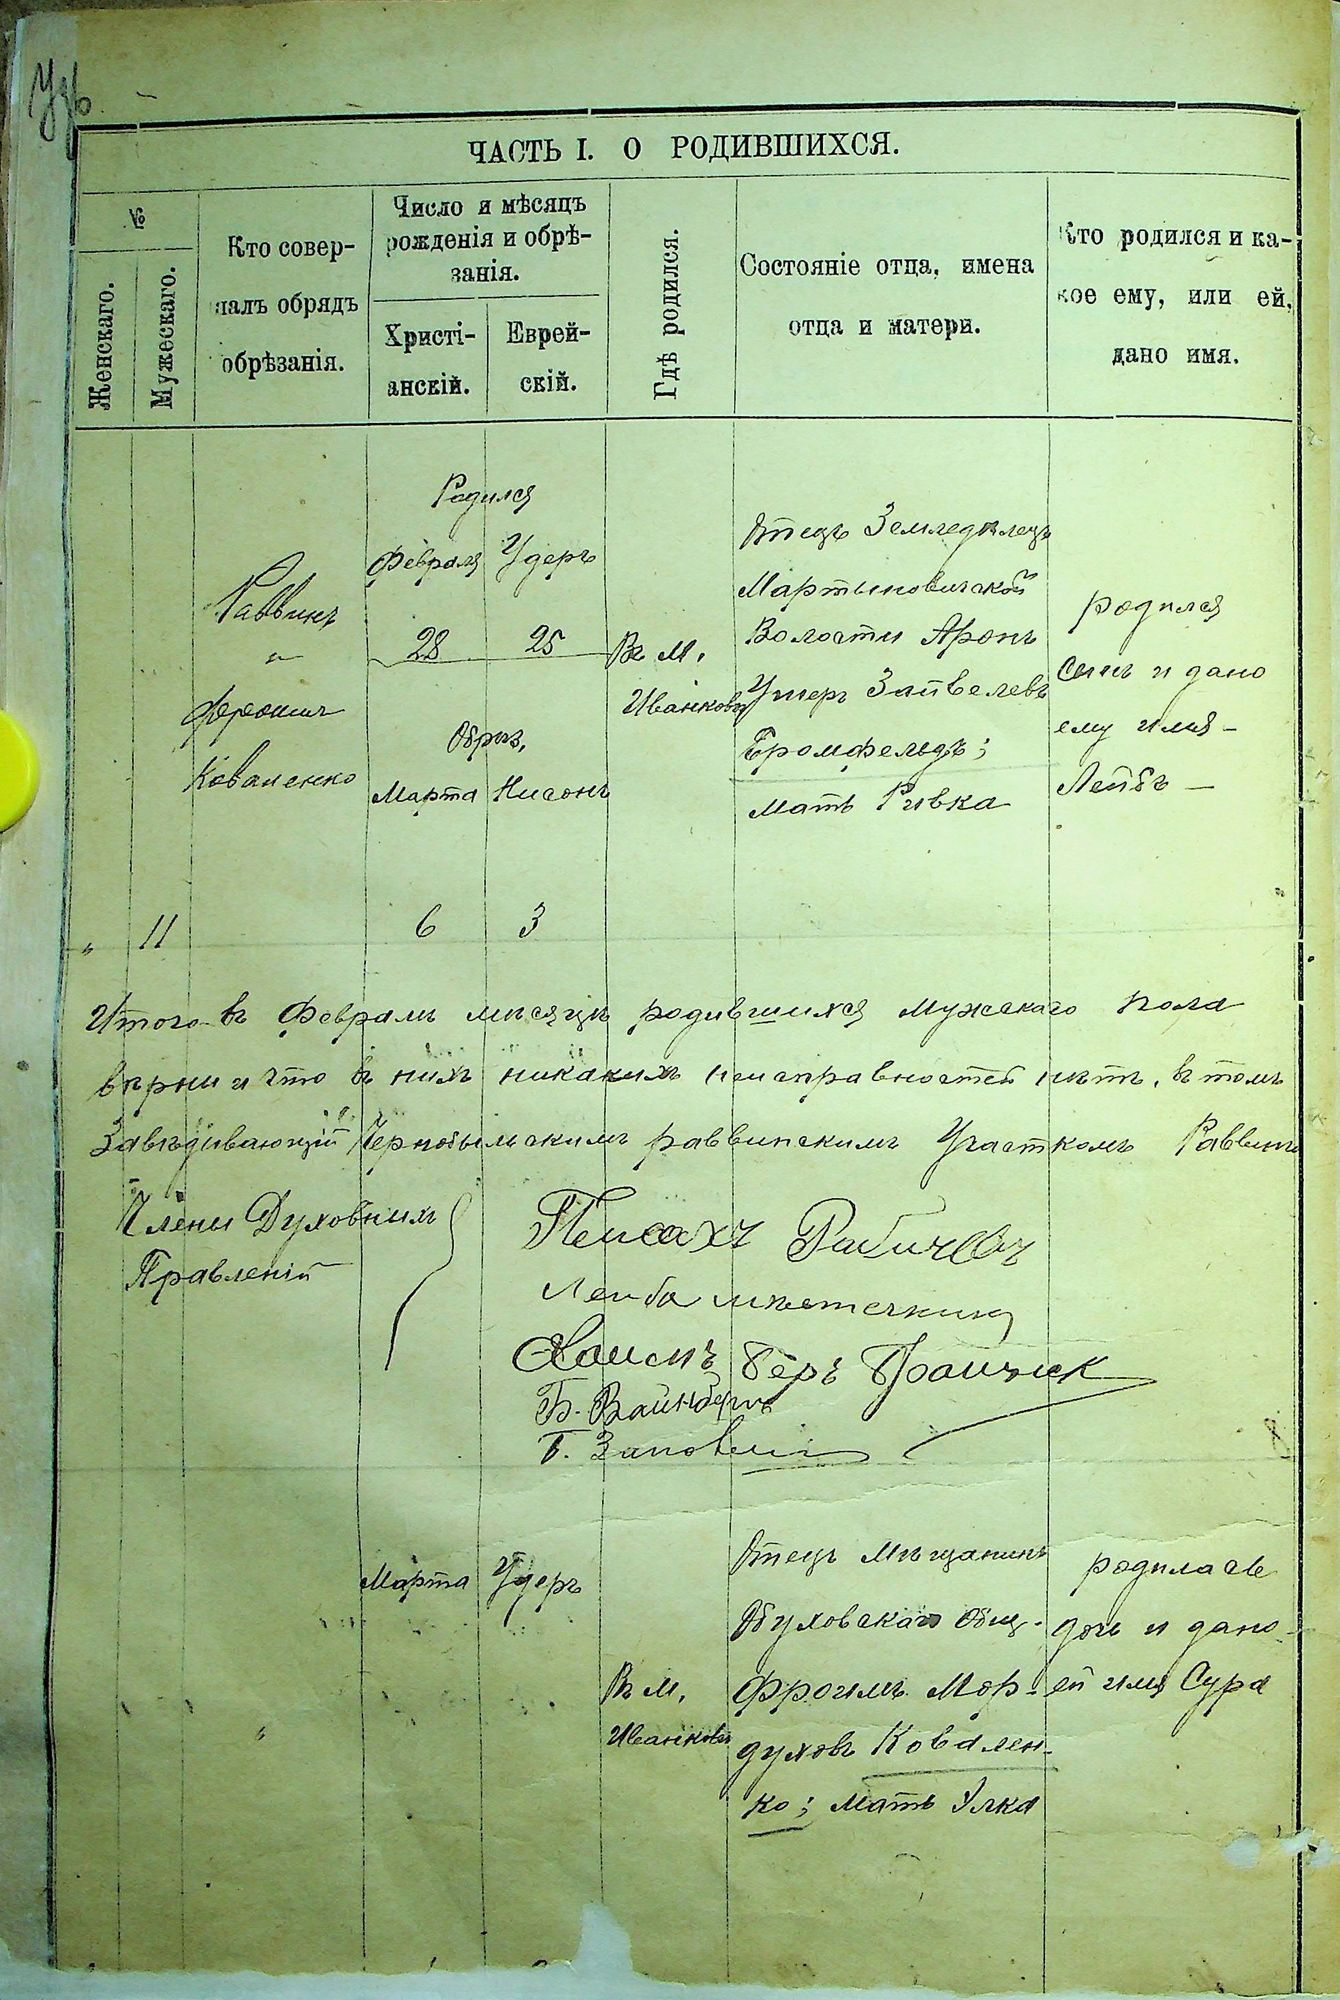 ЧАСТЬ I. О РОДИВШИХСЯ.
№
Женскаго.
Мужескаго.
Кто совер-
шалъ обрядъ
обрѣзанія.
Число и мѣсяцъ
рожденія и обрѣ-
занія.
Христі-
анскій.
Еврей-
скій.
Гдѣ родился.
Состояніе отца, имена
отца и матери.
Кто родился и ка-
кое ему, или ей,
дано имя.
„ 11
Раввинъ
„
Фроимъ
Коваленко
Родился
Февраля Удеръ
28 25
Обрѣз.
Марта Нисонъ
6 3
Въ м.
Иванковъ
Отецъ Земледѣлецъ
Мартыновичской
Волости Аронъ
Ушеръ Зайвелевъ
Бромфельдъ;
мать Ривка
родился
сынъ и дано
ему имя –
Лейбъ –
Итого въ Февралѣ мѣсяцѣ родившихся мужскаго пола
вѣрны и что въ нихъ никакихъ неисправностей нѣтъ, въ томъ
Завѣдывающій Чернобыльскимъ раввинскимъ Участкомъ Раввинъ
Члены Духовныхъ
Правленій
Пейсахъ Рабичевъ
Лейба
Хаимъ Беръ
Б. Вайнбергъ
Марта Удеръ
„
Въ м.
Иванковъ
Отецъ Мѣщанинъ
Обуховскаго Общ.
Фроимъ Мор-
духовъ Ковален-
ко; мать Элка
родилась
дочь и дано
ей имя Сура